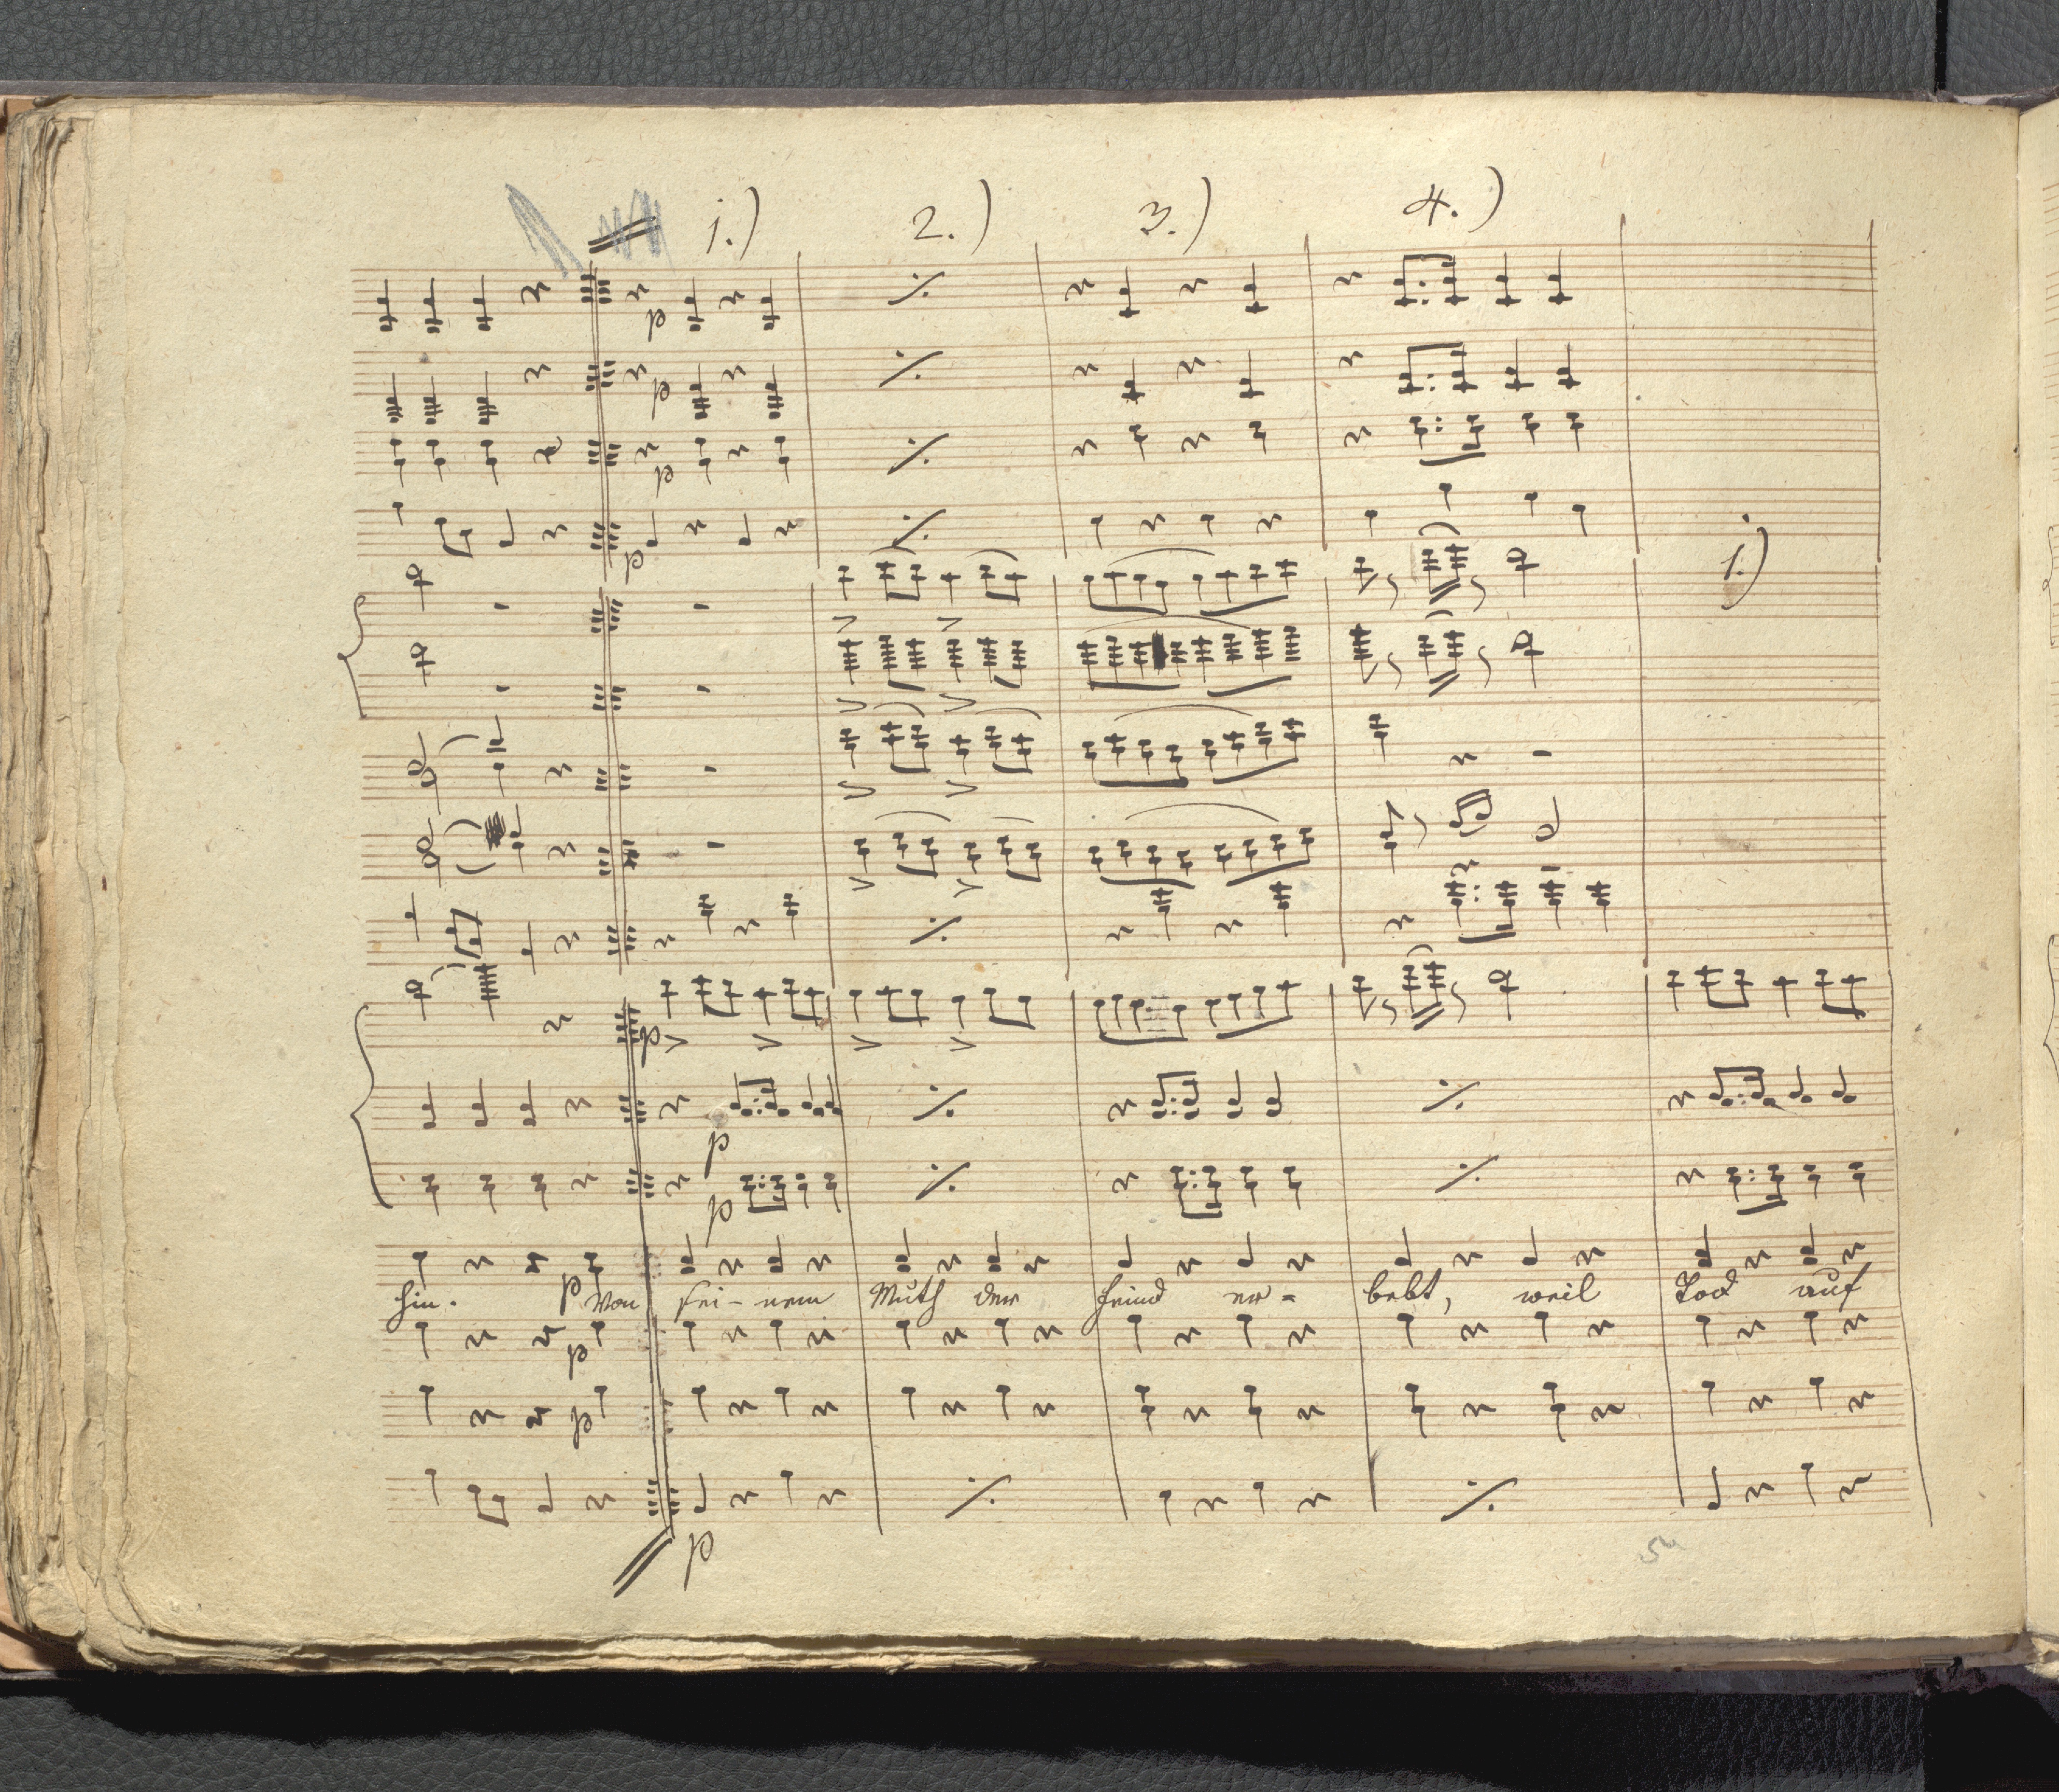 1.) 2.) 3.) 4.)
p
p
p
p
1.)
p
p
p
p
hin. Von sei- nem Muth der Feind er- bebt, weil Tod auf
p
p
p